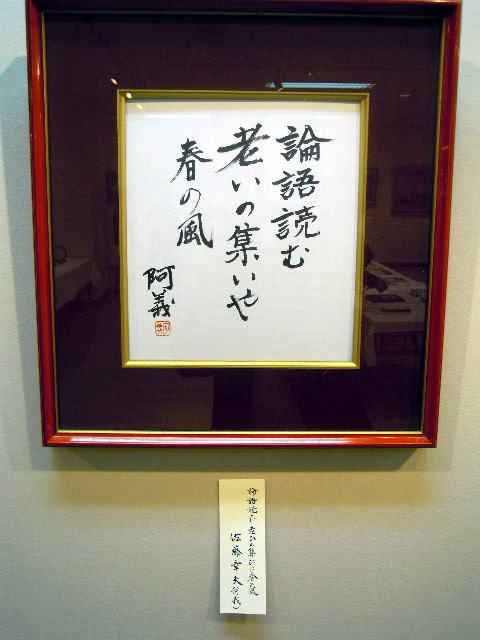 論語読む
老いの集いや
春の風
阿義
論語読む老いの集いに春の風
佐藤幸夫(阿義)